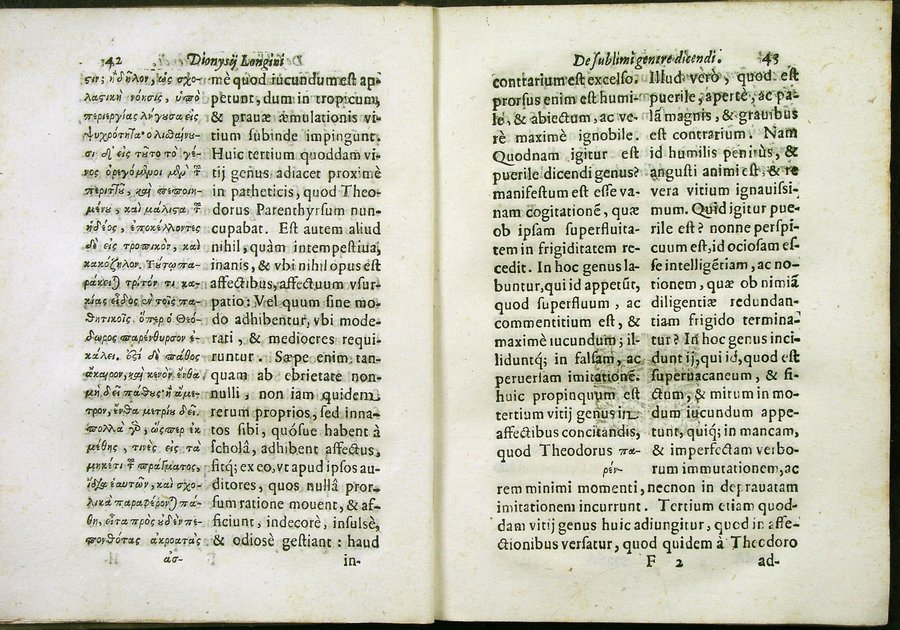 42 Dionysij Longini
τις; ἢ δῆλον, ὡς σχο-
λαστικὴ νόησις, ὑπὸ
περιεργίας λήγουσα εἰς
ψυχρότητα· ὀλισθαίνου-
σι δ' εἰς τοῦτο τὸ γέ-
νος ὀρεγόμενοι μὲν τοῦ
περιττοῦ, καὶ πεποιη-
μένου, καὶ μάλιστα τοῦ
ἡδέος, ἐποκέλλοντες
δὲ εἰς τροπικὸν, καὶ
κακόζηλον. Τούτῳ πα-
ράκειται τρίτόν τι κα-
κίας εἶδος ἐν τοῖς πα-
θητικοῖς, ὅπερ ὁ Θεό-
δωρος παρένθυρσον ἐ-
κάλει. ἔστι δὲ πάθος
ἄκαιρον, καὶ κενὸν, ἔνθα
μὴ δεῖ πάθους· ἢ ἄμε-
τρον, ἔνθα μετρίου δεῖ.
πολλὰ γὰρ, ὥσπερ ἐκ
μέθης, τινὲς εἰς τὰ
μηκέτι τοῦ πράγματος,
ἴδια ἑαυτῶν, καὶ σχο-
λικὰ παραφέρονται πά-
θη, εἶτα πρὸς οὐδὲν πε-
πονθότας ἀκροατὰς
ἀσ-
mè quod iucundum est ap-
petunt, dum in tropicum,
& prauæ æmulationis vi-
tium subinde impingunt.
Huic tertium quoddam vi-
tij genus adiacet proximè
in patheticis, quod Theo-
dorus Parenthyrsum nun-
cupabat. Est autem aliud
nihil, quàm intempestiua,
inanis, & vbi nihil opus est
affectibus, affectuum vsur-
patio: Vel quum sine mo-
do adhibentur, vbi mode-
rati, & mediocres requi-
runtur. Sæpe enim, tan-
quam ab ebrietate non-
nulli, non iam quidem
rerum proprios, sed inna-
tos sibi, quósue habent à
scholâ, adhibent affectus,
sitq; ex eo, vt apud ipsos au-
ditores, quos nullâ pror-
sum ratione mouent, & af-
ficiunt, indecorè, insulsè,
& odiosè gestiant: haud
in-
De sublimi genere dicendi. 43
contrarium est excelso.
prorsus enim est humi-
le, & abiectum, ac ve-
rè maximè ignobile.
Quodnam igitur est
puerile dicendi genus?
manifestum est esse va-
nam cogitationẽ, quæ
ob ipsam superfluita-
tem in frigiditatem re-
cedit. In hoc genus la-
buntur, qui id appetũt,
quod superfluum, ac
commentitium est, &
maximè iucundum; il-
liduntq; in falsam, ac
peruersam imitationẽ.
huic propinquum est
tertium vitij genus in
affectibus concitandis,
quod Theodorus πα-
ρέν-
Illud verò, quod est
puerile, apertè, ac pa-
lã magnis, & grauibus
est contrarium. Nam
id humilis penitùs, &
angusti animi est, & re
vera vitium ignauissi-
mum. Quid igitur pue-
rile est? nonne perspi-
cuum est, id ociosam es-
se intelligẽtiam, ac no-
tionem, quæ ob nimiã
diligentiæ redundan-
tiam frigido termina-
tur? In hoc genus inci-
dunt ij, qui id, quod est
superuacaneum, & fi-
ctum, & mirum in mo-
dum iucundum appe-
tunt, quiq; in mancam,
& imperfectam verbo-
rum immutationem, ac
rem minimi momenti, necnon in deprauatam
imitationem incurrunt. Tertium etiam quod-
dam vitij genus huic adiungitur, quod in affe-
ctionibus versatur, quod quidem à Theodoro
F 2 ad-